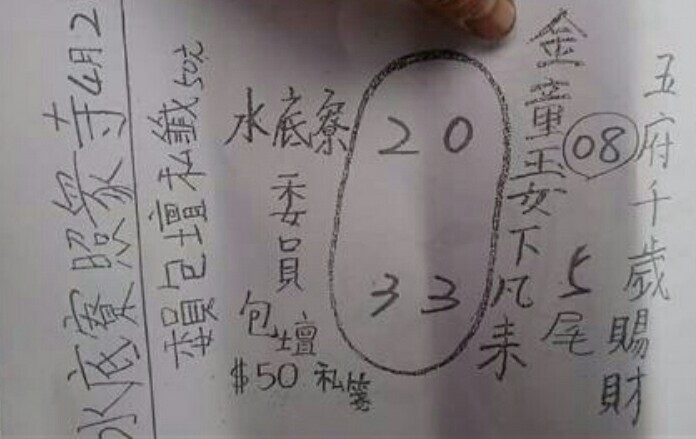 五府千歲賜財
08
5尾
金童玉女下凡來
20
33
水底寮
委員
包壇
$50 私籤
委員包壇私籤50元
水底寮照眾寺4月2